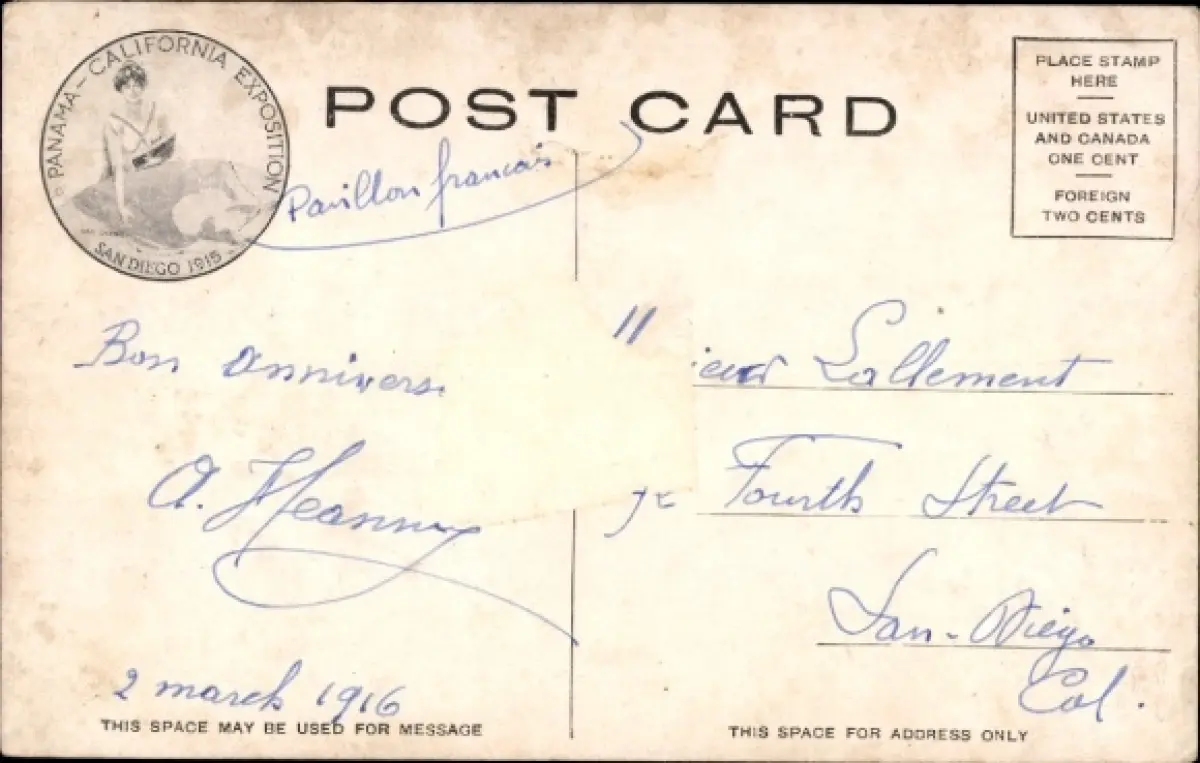 PANAMA - CALIFORNIA EXPOSITION
SAN DIEGO 1915
POST CARD
PLACE STAMP
HERE
UNITED STATES
AND CANADA
ONE CENT
FOREIGN
TWO CENTS
Pavillon francais
Bon annivers
A.
2 march 1916
THIS SPACE MAY BE USED FOR MESSAGE
Lallement
Fourth Street
San-Diego
Cal.
THIS SPACE FOR ADDRESS ONLY